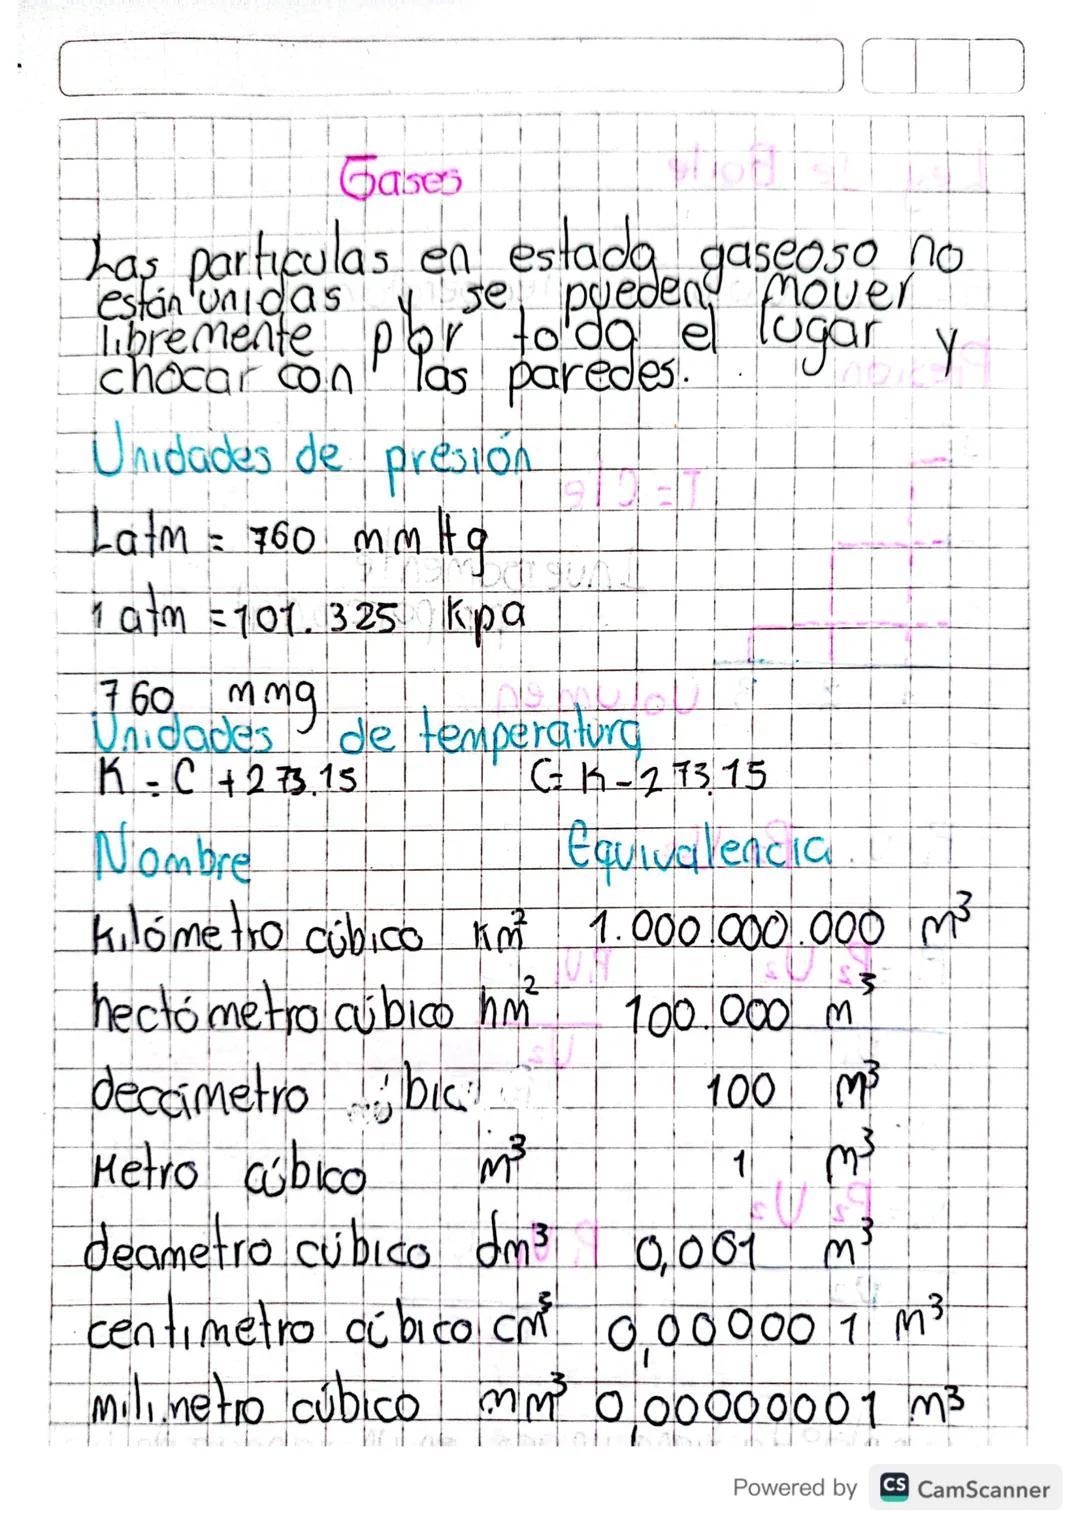 Gases
Las particulas en estado gaseoso no
están unidas y se pueden mover
libremente por todo el lugar y
chocar con las paredes.
Unidades de presión
1 atm = 760 mm Hg
1 atm = 101.325 Kpa
760 mmg
Unidades de temperatura
K = C + 273.15 C= K - 273.15
Nombre Equivalencia
Kilómetro cúbico Km² 1.000.000.000 m³
hectómetro cúbico hm² 100.000 m³
decámetro 100 m³
Metro cúbico m³ 1 m³
decimetro cúbico dm³ 0,001 m³
centimetro cúbico cm³ 0,000001 m³
milimetro cúbico mm³ 0,00000001 m³
Powered by CS CamScanner